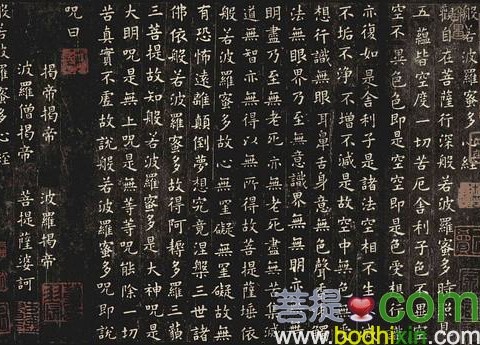 般若波羅蜜多心經
觀自在菩薩行深般若波羅蜜多時照見
五蘊皆空度一切苦厄舍利子色不異空
空不異色色即是空空即是色受想行識
亦復如是舍利子是諸法空相不生
不垢不淨不增不減是故空中無色無
想行識無眼耳鼻舌身意無色聲
法無眼界乃至無意識界無無明亦無
明盡乃至無老死亦無老死盡無苦集滅
道無智亦無得以無所得故菩提薩埵依
般若波羅蜜多故心無罣礙無罣礙故無
有恐怖遠離顛倒夢想究竟涅槃三世諸
佛依般若波羅蜜多故得阿耨多羅三藐
三菩提故知般若波羅蜜多是大神呪是
大明呪是無上呪是無等等呪能除一切
苦真實不虛故說般若波羅蜜多呪即說
呪曰
揭帝揭帝 波羅揭帝
波羅僧揭帝 菩提薩婆訶
般若波羅蜜多心經
菩提 com
www.bodhixin.com